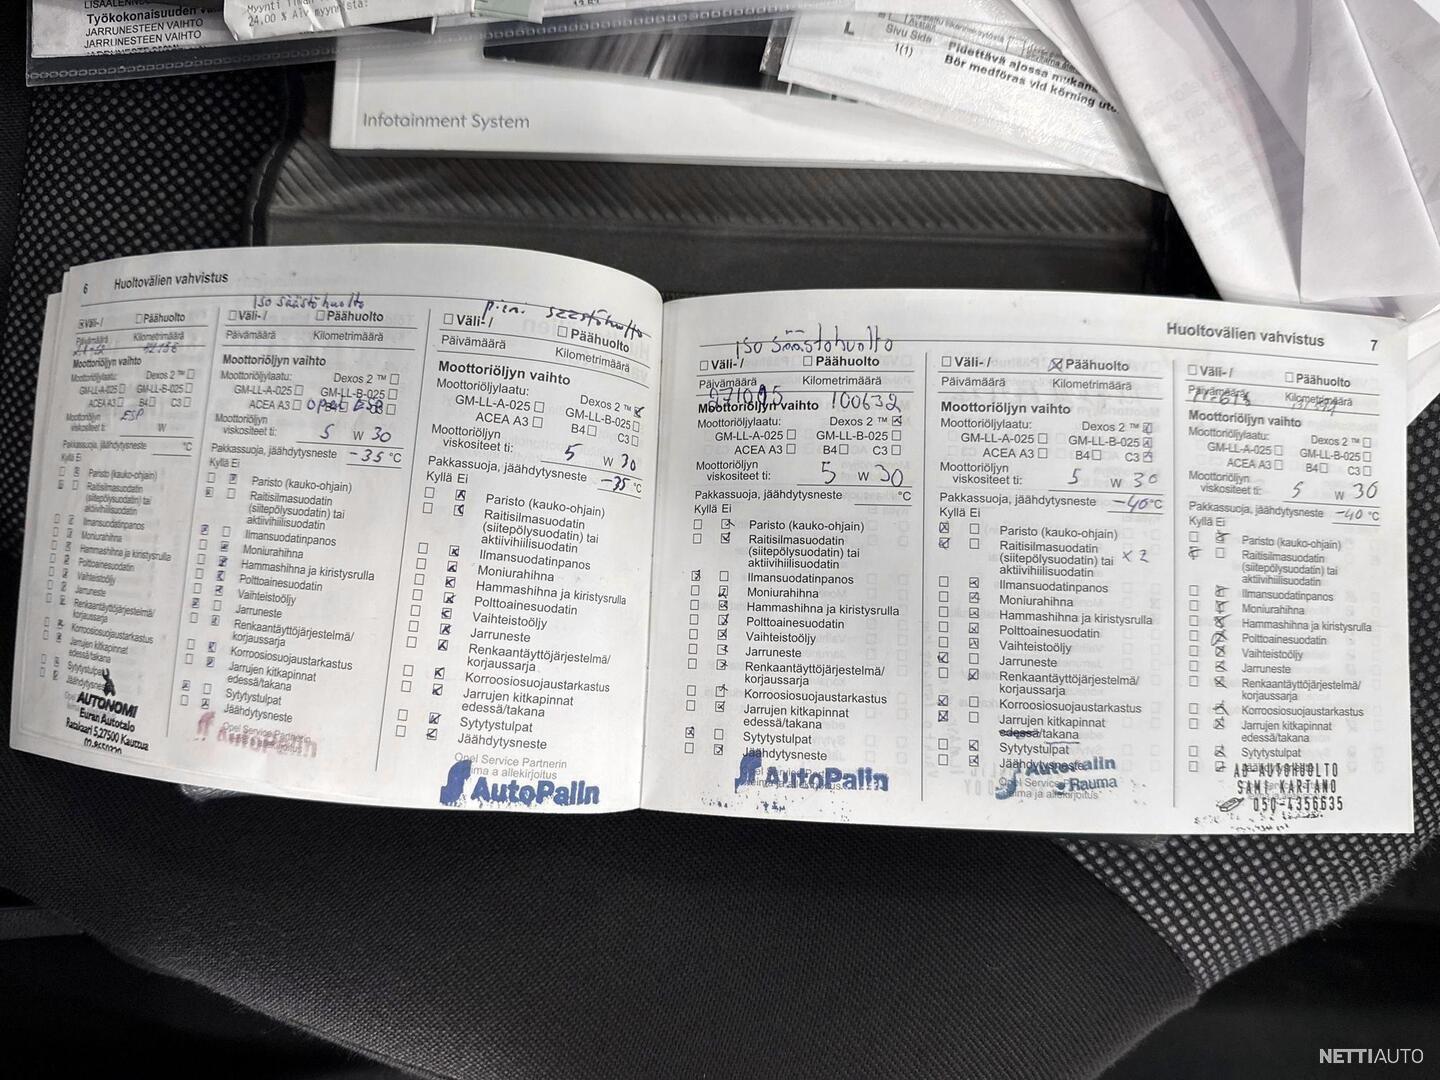 Työkokonaisuuden
JARRUNESTEEN VAIHTO
JARRUNESTEEN VAIHTO
24,00 % Alv myynnistä:
L
Sivu Sida
1(1)
Pidettävä ajossa mukana
Bör medföras vid körning
Infotainment System
6 Huoltovälien vahvistus
Väli- / Päähuolto
Päivämäärä Kilometrimäärä
Moottoriöljyn vaihto
Moottoriöljylaatu: Dexos 2 ™
GM-LL-A-025 GM-LL-B-025
ACEA A3 B4 C3
Moottoriöljyn ESP
viskositeet ti: W
Pakkassuoja, jäähdytysneste °C
Kyllä Ei
Paristo (kauko-ohjain)
Raitisilmasuodatin
(siitepölysuodatin) tai
aktiivihiilisuodatin
Ilmansuodatinpanos
Moniurahihna
Hammashihna ja kiristysrulla
Polttoainesuodatin
Vaihteistoöljy
Jarruneste
Renkaantäyttöjärjestelmä/
korjaussarja
Korroosiosuojaustarkastus
Jarrujen kitkapinnat
edessä/takana
Sytytystulpat
Jäähdytysneste
AUTONOMI
Euran Autotalo
27500 Kauttua
iso säästöhuolto
Väli- / Päähuolto
Päivämäärä Kilometrimäärä
Moottoriöljyn vaihto
Moottoriöljylaatu: Dexos 2 ™
GM-LL-A-025 GM-LL-B-025
ACEA A3 B4 C3
Moottoriöljyn
viskositeet ti: 5 W 30
Pakkassuoja, jäähdytysneste -35 °C
Kyllä Ei
Paristo (kauko-ohjain)
Raitisilmasuodatin
(siitepölysuodatin) tai
aktiivihiilisuodatin
Ilmansuodatinpanos
Moniurahihna
Hammashihna ja kiristysrulla
Polttoainesuodatin
Vaihteistoöljy
Jarruneste
Renkaantäyttöjärjestelmä/
korjaussarja
Korroosiosuojaustarkastus
Jarrujen kitkapinnat
edessä/takana
Sytytystulpat
Jäähdytysneste
Opel Service Partnerin
AutoPalin
pieni säästöhuolto
Väli- / Päähuolto
Päivämäärä Kilometrimäärä
Moottoriöljyn vaihto
Moottoriöljylaatu: Dexos 2 ™
GM-LL-A-025 GM-LL-B-025
ACEA A3 B4 C3
Moottoriöljyn
viskositeet ti: 5 W 30
Pakkassuoja, jäähdytysneste -35 °C
Kyllä Ei
Paristo (kauko-ohjain)
Raitisilmasuodatin
(siitepölysuodatin) tai
aktiivihiilisuodatin
Ilmansuodatinpanos
Moniurahihna
Hammashihna ja kiristysrulla
Polttoainesuodatin
Vaihteistoöljy
Jarruneste
Renkaantäyttöjärjestelmä/
korjaussarja
Korroosiosuojaustarkastus
Jarrujen kitkapinnat
edessä/takana
Sytytystulpat
Jäähdytysneste
Opel Service Partnerin
leima a allekirjoitus
AutoPalin
Huoltovälien vahvistus 7
iso säästöhuolto
Väli- / Päähuolto
Päivämäärä Kilometrimäärä
100632
Moottoriöljyn vaihto
Dexos 2 ™
GM-LL-A-025 GM-LL-B-025
ACEA A3 B4 C3
Moottoriöljyn
viskositeet ti: 5 W 30
Pakkassuoja, jäähdytysneste °C
Kyllä Ei
Paristo (kauko-ohjain)
Raitisilmasuodatin
(siitepölysuodatin) tai
aktiivihiilisuodatin
Ilmansuodatinpanos
Moniurahihna
Hammashihna ja kiristysrulla
Polttoainesuodatin
Vaihteistoöljy
Jarruneste
Renkaantäyttöjärjestelmä/
korjaussarja
Korroosiosuojaustarkastus
Jarrujen kitkapinnat
edessä/takana
Sytytystulpat
Jäähdytysneste
AutoPalin
Väli- / Päähuolto
Päivämäärä Kilometrimäärä
Moottoriöljyn vaihto
Moottoriöljylaatu: Dexos 2 ™
GM-LL-A-025 GM-LL-B-025
ACEA A3 B4 C3
Moottoriöljyn
viskositeet ti: 5 W 30
Pakkassuoja, jäähdytysneste -40 °C
Kyllä Ei
Paristo (kauko-ohjain)
Raitisilmasuodatin
(siitepölysuodatin) tai x2
aktiivihiilisuodatin
Ilmansuodatinpanos
Moniurahihna
Hammashihna ja kiristysrulla
Polttoainesuodatin
Vaihteistoöljy
Jarruneste
Renkaantäyttöjärjestelmä/
korjaussarja
Korroosiosuojaustarkastus
Jarrujen kitkapinnat
edessä/takana
Sytytystulpat
Jäähdytysneste
AutoPalin
Rauma
Väli- / Päähuolto
Päivämäärä Kilometrimäärä
Moottoriöljyn vaihto
Moottoriöljylaatu: Dexos 2 ™
GM-LL-A-025 GM-LL-B-025
ACEA A3 B4 C3
Moottoriöljyn
viskositeet ti: 5 W 30
Pakkassuoja, jäähdytysneste -40 °C
Kyllä Ei
Paristo (kauko-ohjain)
Raitisilmasuodatin
(siitepölysuodatin) tai
aktiivihiilisuodatin
Ilmansuodatinpanos
Moniurahihna
Hammashihna ja kiristysrulla
Polttoainesuodatin
Vaihteistoöljy
Jarruneste
Renkaantäyttöjärjestelmä/
korjaussarja
Korroosiosuojaustarkastus
Jarrujen kitkapinnat
edessä/takana
Sytytystulpat
AD-AUTOHUOLTO
SAMI KARTANO
050-4356635
NETTIAUTO